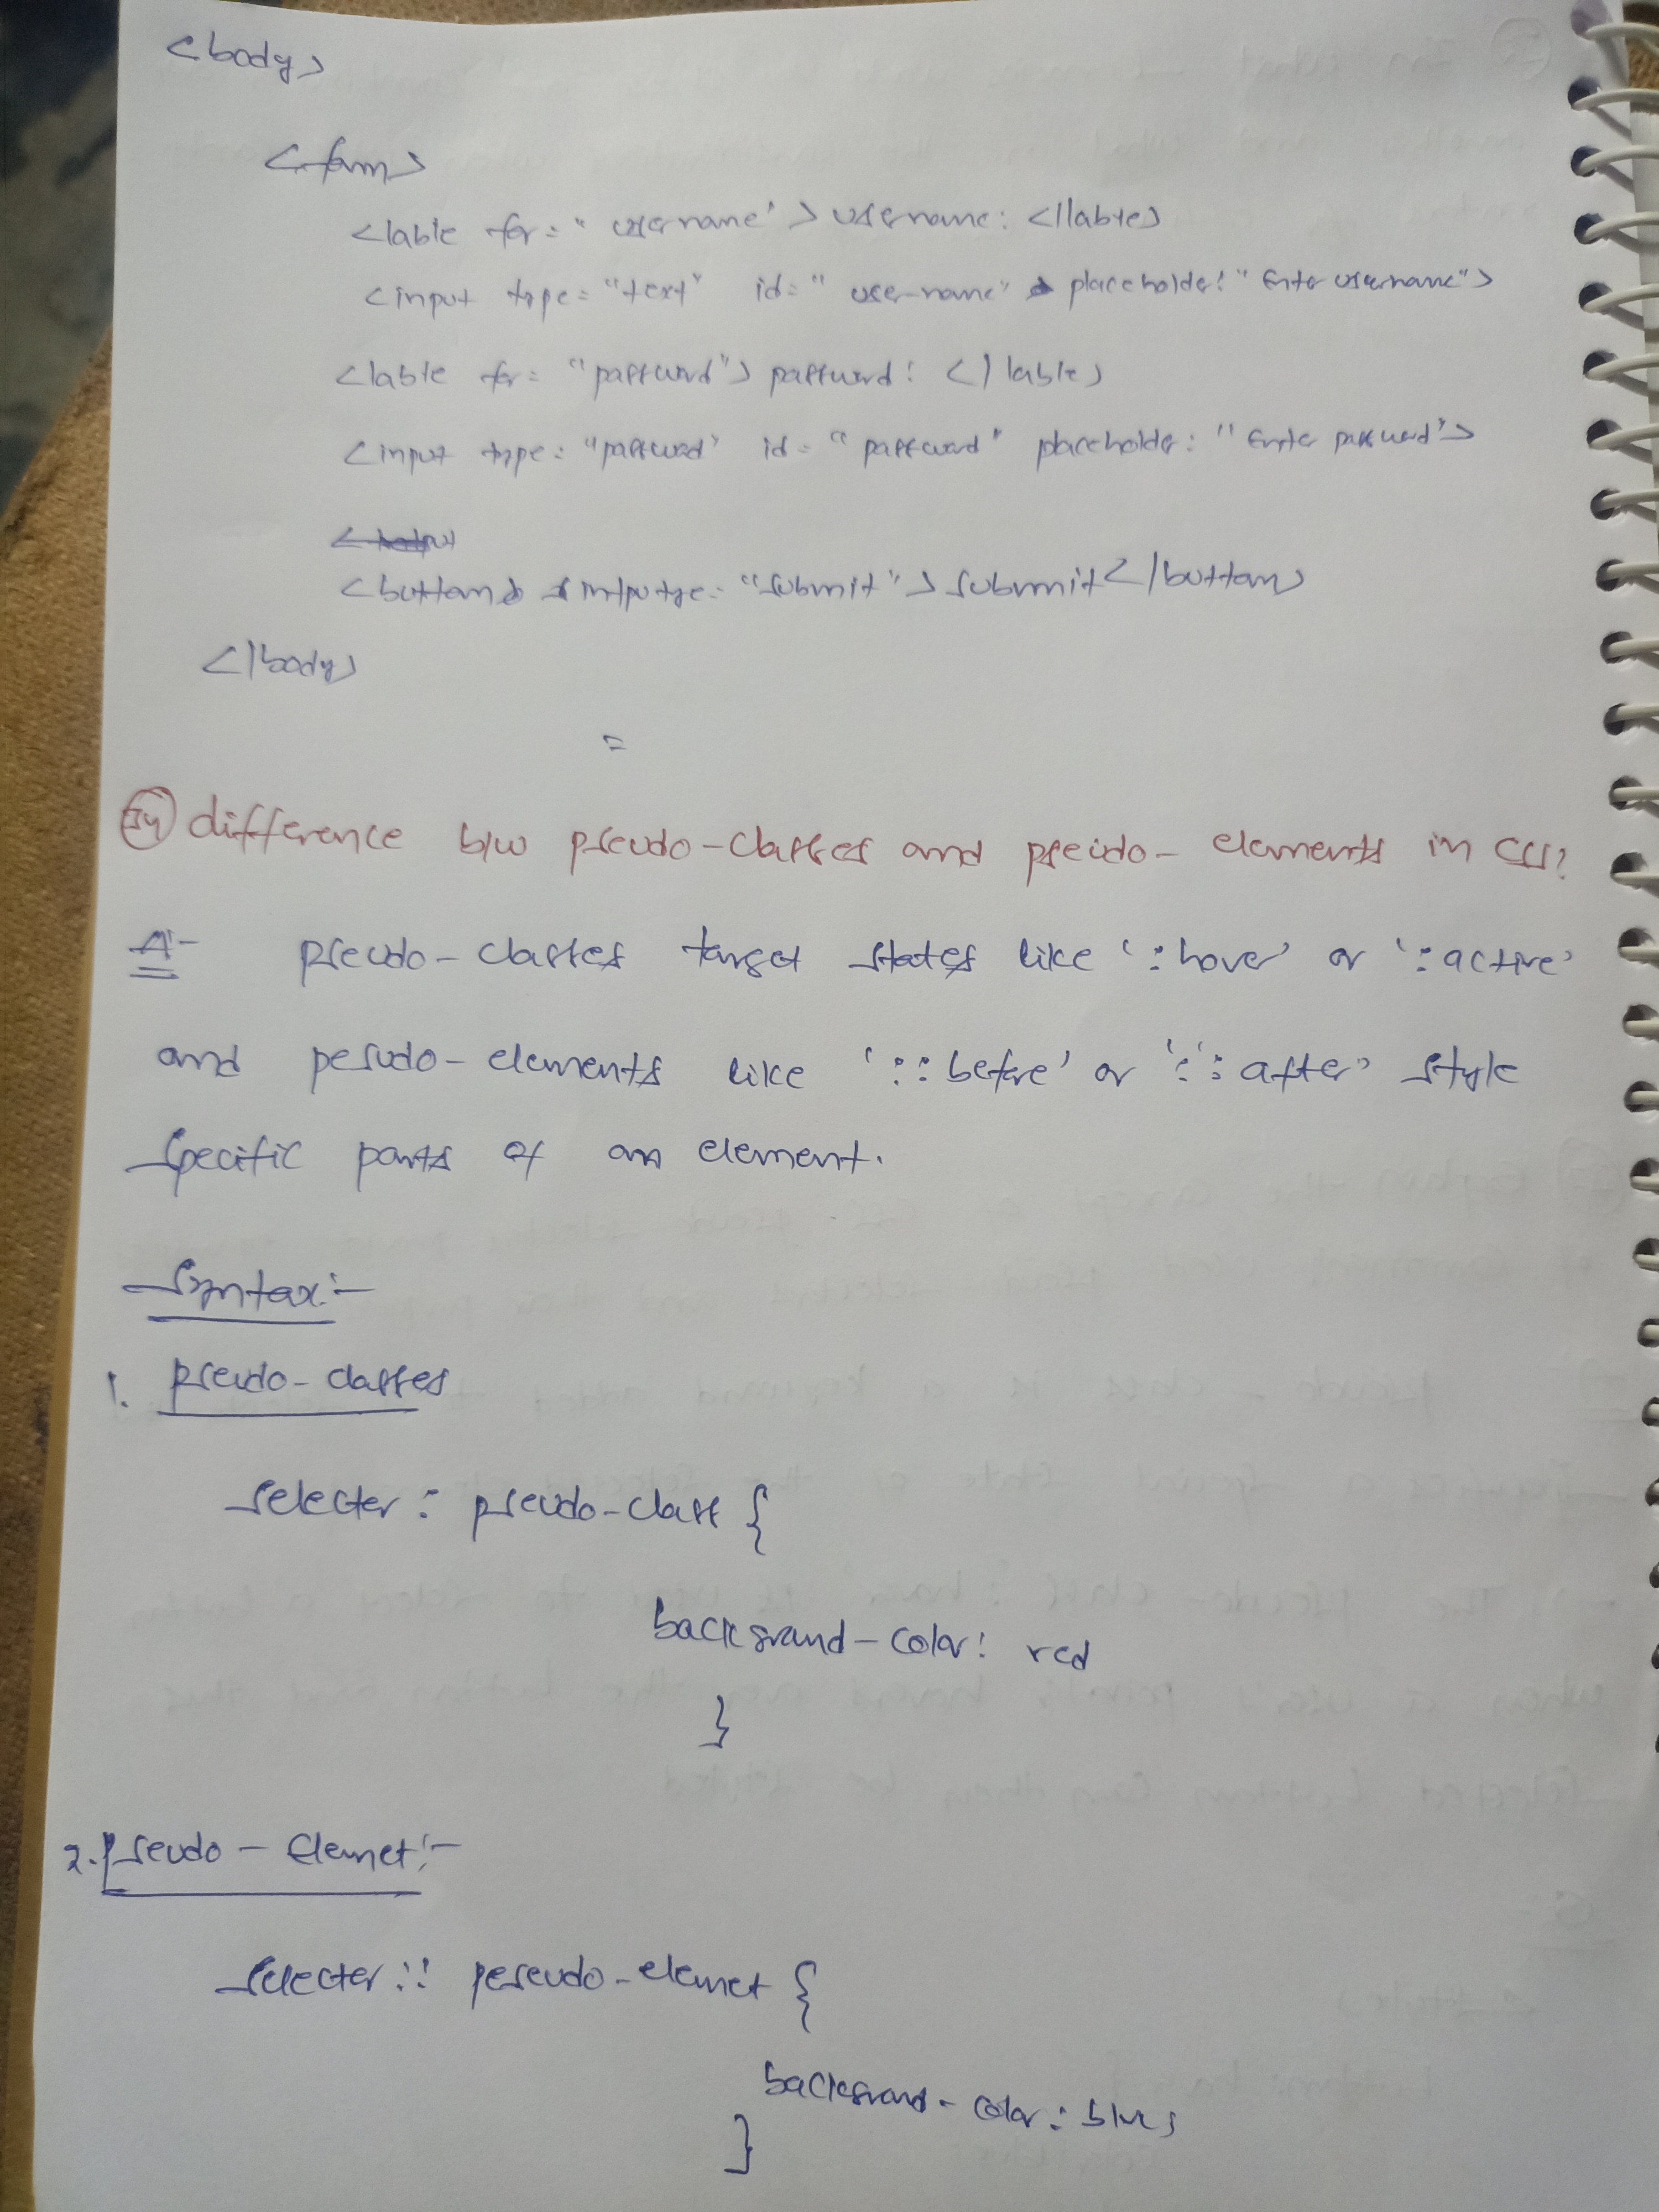 <body>
<form>
<lable for = "username"> username: </lable>
<input type = "text" id = "user-name" placeholder: "Enter username">
<lable for = "password"> password: </lable>
<input type = "password" id = "password" placeholder: "Enter password">
<button = "submit"> submit </button>
</body>
=
54 difference b/w pseudo-classes and pseido-elements in css?
A:- pseudo-classes target states like ':hover' or ':active'
and pesudo-elements like '::before' or '::after' style
specific parts of an element.
Syntax:-
1. pseudo-classes
selecter : pseudo-class {
background-color: red
}
2. Pseudo-Elemet:-
selecter :: peseudo-elemet {
background-color: blue;
}